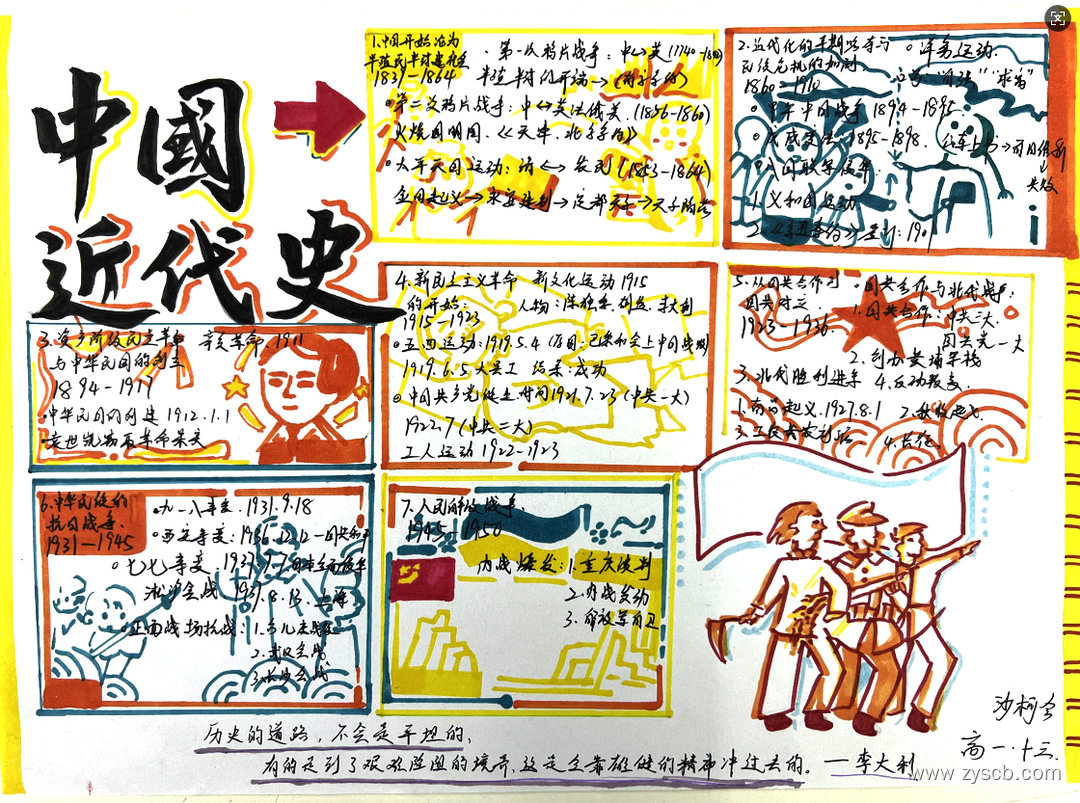 中國
近代史
1.中国开始沦为
半殖民半封建社会
1839—1864
·第一次鸦片战争：中↔英
半殖半封的开端→
第二次鸦片战争：中↔英法俄美 (1856—1860)
火烧圆明园
太平天国运动：清↔农民 (1853—1864)
金田起义→永安建制→定都天京→天京陷落
2.近代化的早期探索与
民族危机的加剧
1860—1910
洋务运动
"自强""求富"
甲午中日战争 1894—1895
戊戌变法 1895—1898. 公车上书
失败
八国联军侵华
义和团运动
《辛丑条约》签订：1901
3.资产阶级民主革命
与中华民国的创立
1894—1917
辛亥革命 1911
·中华民国的创建 1912.1.1
袁世凯窃取革命果实
4.新民主主义革命
的开始：
1915—1923
新文化运动 1915
人物：陈独秀、胡适、李大利
五四运动：1919.5.4 (原因：巴黎和会上中国战败)
1919.6.5 大罢工 结果：成功
中国共产党诞生 时间1921.7.23 (中共一大)
1922.7 (中共二大)
工人运动 1922—1923
5.从国共合作到
国共对立
1923—1936
国共合作与北伐战争：
1.国共合作：中共三大、
国民党一大
2.创办黄埔军校
3.北伐胜利进军 4.反动叛变
1.南昌起义.1927.8.1 2.秋收起义
4.长征
6.中华民族的
抗日战争.
1931—1945
九一八事变.1931.9.18
西安事变：1936.12.12—国共和平
七七事变：1937.7.7 日本全面侵华
淞沪会战 1937.8.13 上海
正面战场抗战：1.台儿庄战役
2.武汉会战
3.长沙会战
7.人民解放战争.
1945—1950
内战爆发：1.重庆谈判
2.内战发动
3.解放军自卫
历史的道路，不会是平坦的、
有的走到了艰难险阻的境界.这是全靠雄健的精神冲过去的。—李大利
高一.十三.
www.zyscb.com